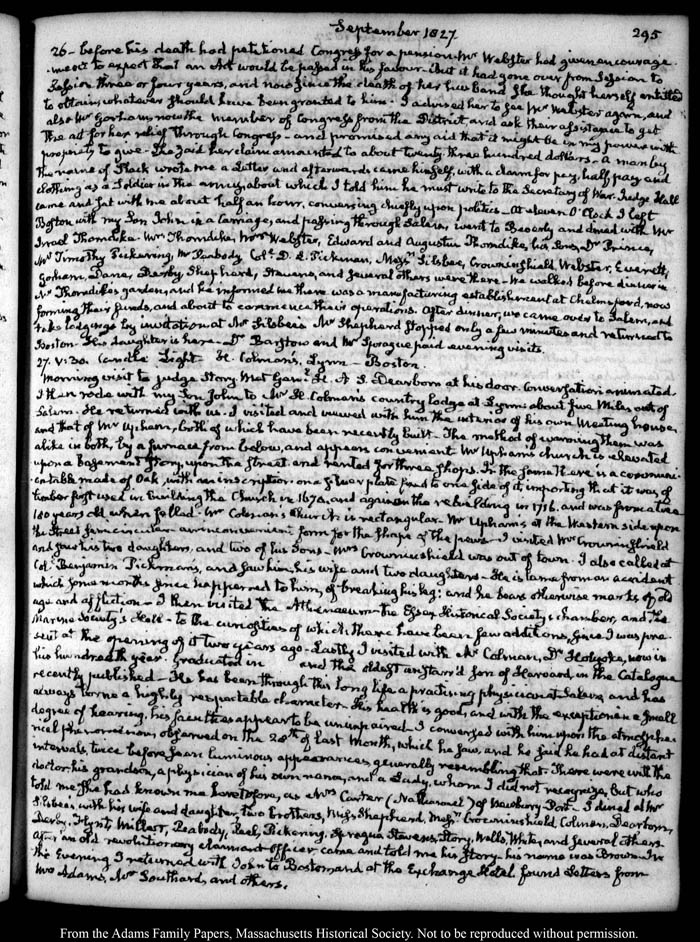 September 1827
295
26 – before his death had petitioned Congress for a pension. Mr Webster had given encourage-
-ment to expect that an Act would be passed in his favour – But it had gone over from Session to
Session three or four years, and now since the death of her husband She thought herself entitled
to obtain whatever should have been granted to him. I advised her to see Mr Webster again, and
also Mr Gorham, now the member of Congress from the District, and ask their assistance to get
the act for her relief through Congress – and promised any aid that it might be in my power with
propriety to give – She said her claim amounted to about twenty three hundred dollars – A man by
the name of Black wrote me a Letter and afterwards came himself, with a claim for pay, half pay and
clothing as a Soldier in the army, about which I told him he must write to the Secretary of War. Judge Hall
came and sat with me about half an hour, conversing chiefly upon politics – At eleven O'Clock I left
Boston with my Son John in a Carriage, and passing through Salem, went to Beverly and dined with Mr
Israel Thorndike. Mrs Thorndike, Mrs Webster, Edward and Augustus Thorndike, his Sons, Dr Prince,
Mr Timothy Pickering, Mr Peabody Col. D. L. Pickman, Messrs Silsbee, Crowninshield, Webster, Everett,
Gorham, Dana, Derby Shephard, Stevens, and several others were there – We walked before dinner in
Mr Thorndikes garden, and he informed me there was a manufacturing establishment at Chelmsford, now
forming their funds, and about to commence their operations. After dinner, we came over to Salem, and
take lodgings by invitation at Mr Silsbee's Mr Shepherd stopped only a few minutes and returned to
Boston. His daughter is here – Dr Barstow and Mr Sprague paid evening visits.
27. V:30. Candle Light – H. Colmans, Lynn – Boston.
Morning visit to Judge Story. Met Genl H. A. S. Dearborn at his door. Conversation animated.
I then rode with my Son John to Mr H. Colmans country lodge at Lynn: about five Miles out of
Salem. He returned with us. I visited and viewed with him the interior of his own Meeting house,
and that of Mr Upham, both of which have been recently built. The method of warming them was
alike in both, by a furnace from below, and appears convenient. Mr Uphams church is elevated
upon a basement Story, upon the Street and rented for three shops. In the same there is a communi-
-on table made of Oak, with an inscription on a silver plate fixed to one side of it, importing that it was of
timber first used in building the Church in 1670, and again on the rebuilding in 1718, and was from a tree
100 years old when felled. Mr Colman's Church is rectangular – Mr Uphams at the Western side upon
the Street semicircular – an inconvenient form for the shape of the pews – I visited Mrs Crowninshield
and saw his two daughters, and two of his Sons – Mrs Crowninshield was out of town. I also called at
Col. Benjamin Pickmans, and saw him, his wife and two daughters – He is lame from an accident
which some months since happened to him, of breaking his leg: and he bears otherwise marks of old
age and affliction – I then visited the Athenaeum – the Essex Historical Society's chamber, and the
Marine Society's Hall – to the curiosities of which there have been few additions, since I was pre-
sent at the opening of it two years ago – Lastly I visited with Mr Colman, Dr Holyoke, now in
his hundredth year. Graduated in and the oldest unstarr'd Son of Harvard, in the Catalogue
recently published – He has been through this long life a practising physician at Salem, and has
always borne a highly respectable character – His health is good, and with the exception of a small
degree of hearing, his faculties appear to be unimpaired – I conversed with him upon the atmosphe-
rical phenomenon, observed on the 28th of last Month, which he saw, and he said he had at distant
intervals, twice before seen luminous appearances, generally resembling that. There were with the
doctor his grandson, a physician of his own name, and a Lady, whom I did not recognize, but who
told me She had known me heretofore, as Mrs Carter (Nathaniel) of Newbury Port – I dined at Mr
Silsbees, with his wife and daughter, two brothers, Miss Shepherd, Messrs Crowninshield, Colman, Dearborn,
Derby, Flynt, Millett, Peabody, Peele, Pickering, Sprague Stevens, Story, Wells, White, and several others
After an old revolutionary claimant officer came and told me his Story – his name was Brown – In
the Evening I returned with John to Boston and at the Exchange Hotel found Letters from
Mrs Adams, Mr Southard, and others.
From the Adams Family Papers, Massachusetts Historical Society. Not to be reproduced without permission.